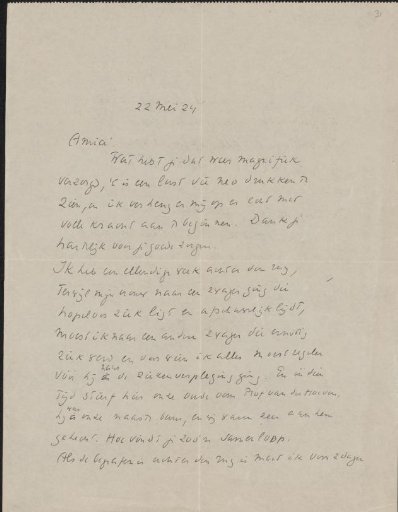 31
22 Mei 24
Amice!
Wat hebt je dat weer magnifiek
verzorgd, 't is een lust die neo druk te
zien, en ik verheug er mij op er eens met
volle kracht aan te beginnen. Dank je
hartelijk voor je goede zorgen.
Ik heb een ellendige week achter den rug,
Terwijl mijn vrouw naar een zwager ging die
hopeloos ziek ligt en afschuwelijk lijdt,
moest ik naar een andere zwager die ernstig
ziek werd en voor wien ik alles moest regelen
vóór hij naar de ziekenverpleging ging. En in dien
tijd stierf hier onze oude vriend Prof van der Hoeven,
hij was onze naaste buur, en wij waren zeer aan hem
gehecht. Hoe vindt je zoo'n samenloop.
(Als de begrafenis achter den rug is moet ik voor 2 dagen